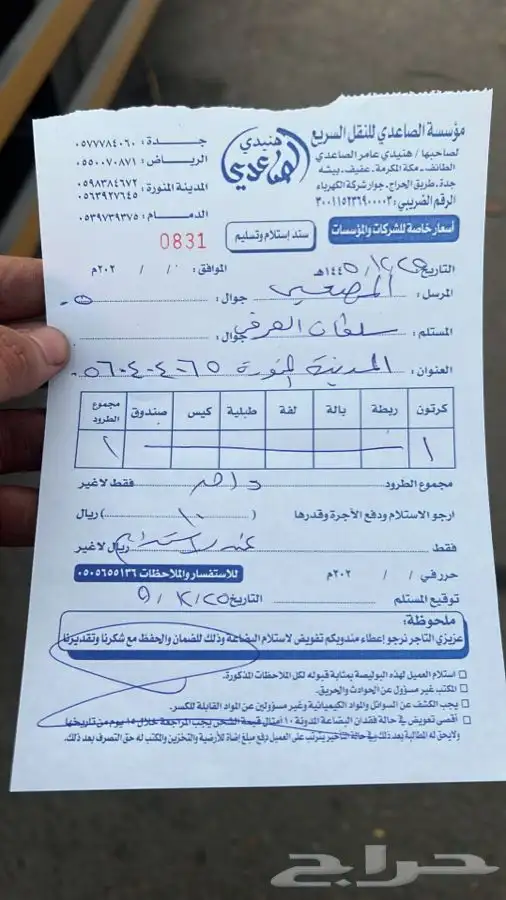 مؤسسة الصاعدي للنقل السريع
لصاحبها / هنيدي عامر الصاعدي
الطائف - مكة المكرمة - عفيف - بيشه
جدة - طريق الحراج - جوار شركة الكهرباء
الرقم الضريبي: ٣٠٠١١٥٢٣٦٩٠٠٠٠٣
أسعار خاصة للشركات والمؤسسات
هنيدي
الصاعدي
سند إستلام وتسليم
جدة: ٠٥٧٧٧٨٤٠٦٠
الرياض: ٠٥٥٠٠٧٠٨٧١
٠٥٩٨٣٨٤٦٧٢
المدينة المنورة: ٠٥٦٣٩٢٧٦٤٥
الدمام: ٠٥٣٩٧٣٩٣٧٥
0831
التاريخ ١٤٤٥هـ الموافق: / / ٢٠٢م
المرسل: جوال:
المستلم: سلطان العرفي جوال:
العنوان: المدينة المنورة
كرتون ربطة بالة لفة طبلية كيس صندوق مجموع الطرود
١
مجموع الطرود واحد فقط لاغير
ارجو الاستلام ودفع الأجرة وقدرها ( ١٠ ) ريال
فقط ريال لاغير
حرر في / / ٢٠٢م للاستفسار والملاحظات ٠٥٠٥٦٥٥١٣٦
توقيع المستلم التاريخ
ملحوظة:
عزيزي التاجر نرجو إعطاء مندوبكم تفويض لاستلام البضاعة وذلك للضمان والحفظ مع شكرنا وتقديرنا
استلام العميل لهذه البوليصة بمثابة قبوله لكل الملاحظات المذكورة.
المكتب غير مسؤول عن الحوادث والحريق.
يجب الكشف عن السوائل والمواد الكيميائية وغير مسؤولين عن المواد القابلة للكسر.
أقصى تعويض في حالة فقدان البضاعة المدونة ١٠ أمثال قيمة الشحن يجب المراجعة خلال ١٥ يوم من تاريخها
ولايحق له المطالبة بعد ذلك في حالة التأخير يترتب على العميل دفع مبلغ إضافة للأرضية والتخزين والمكتب له حق التصرف بعد ذلك.
حراج